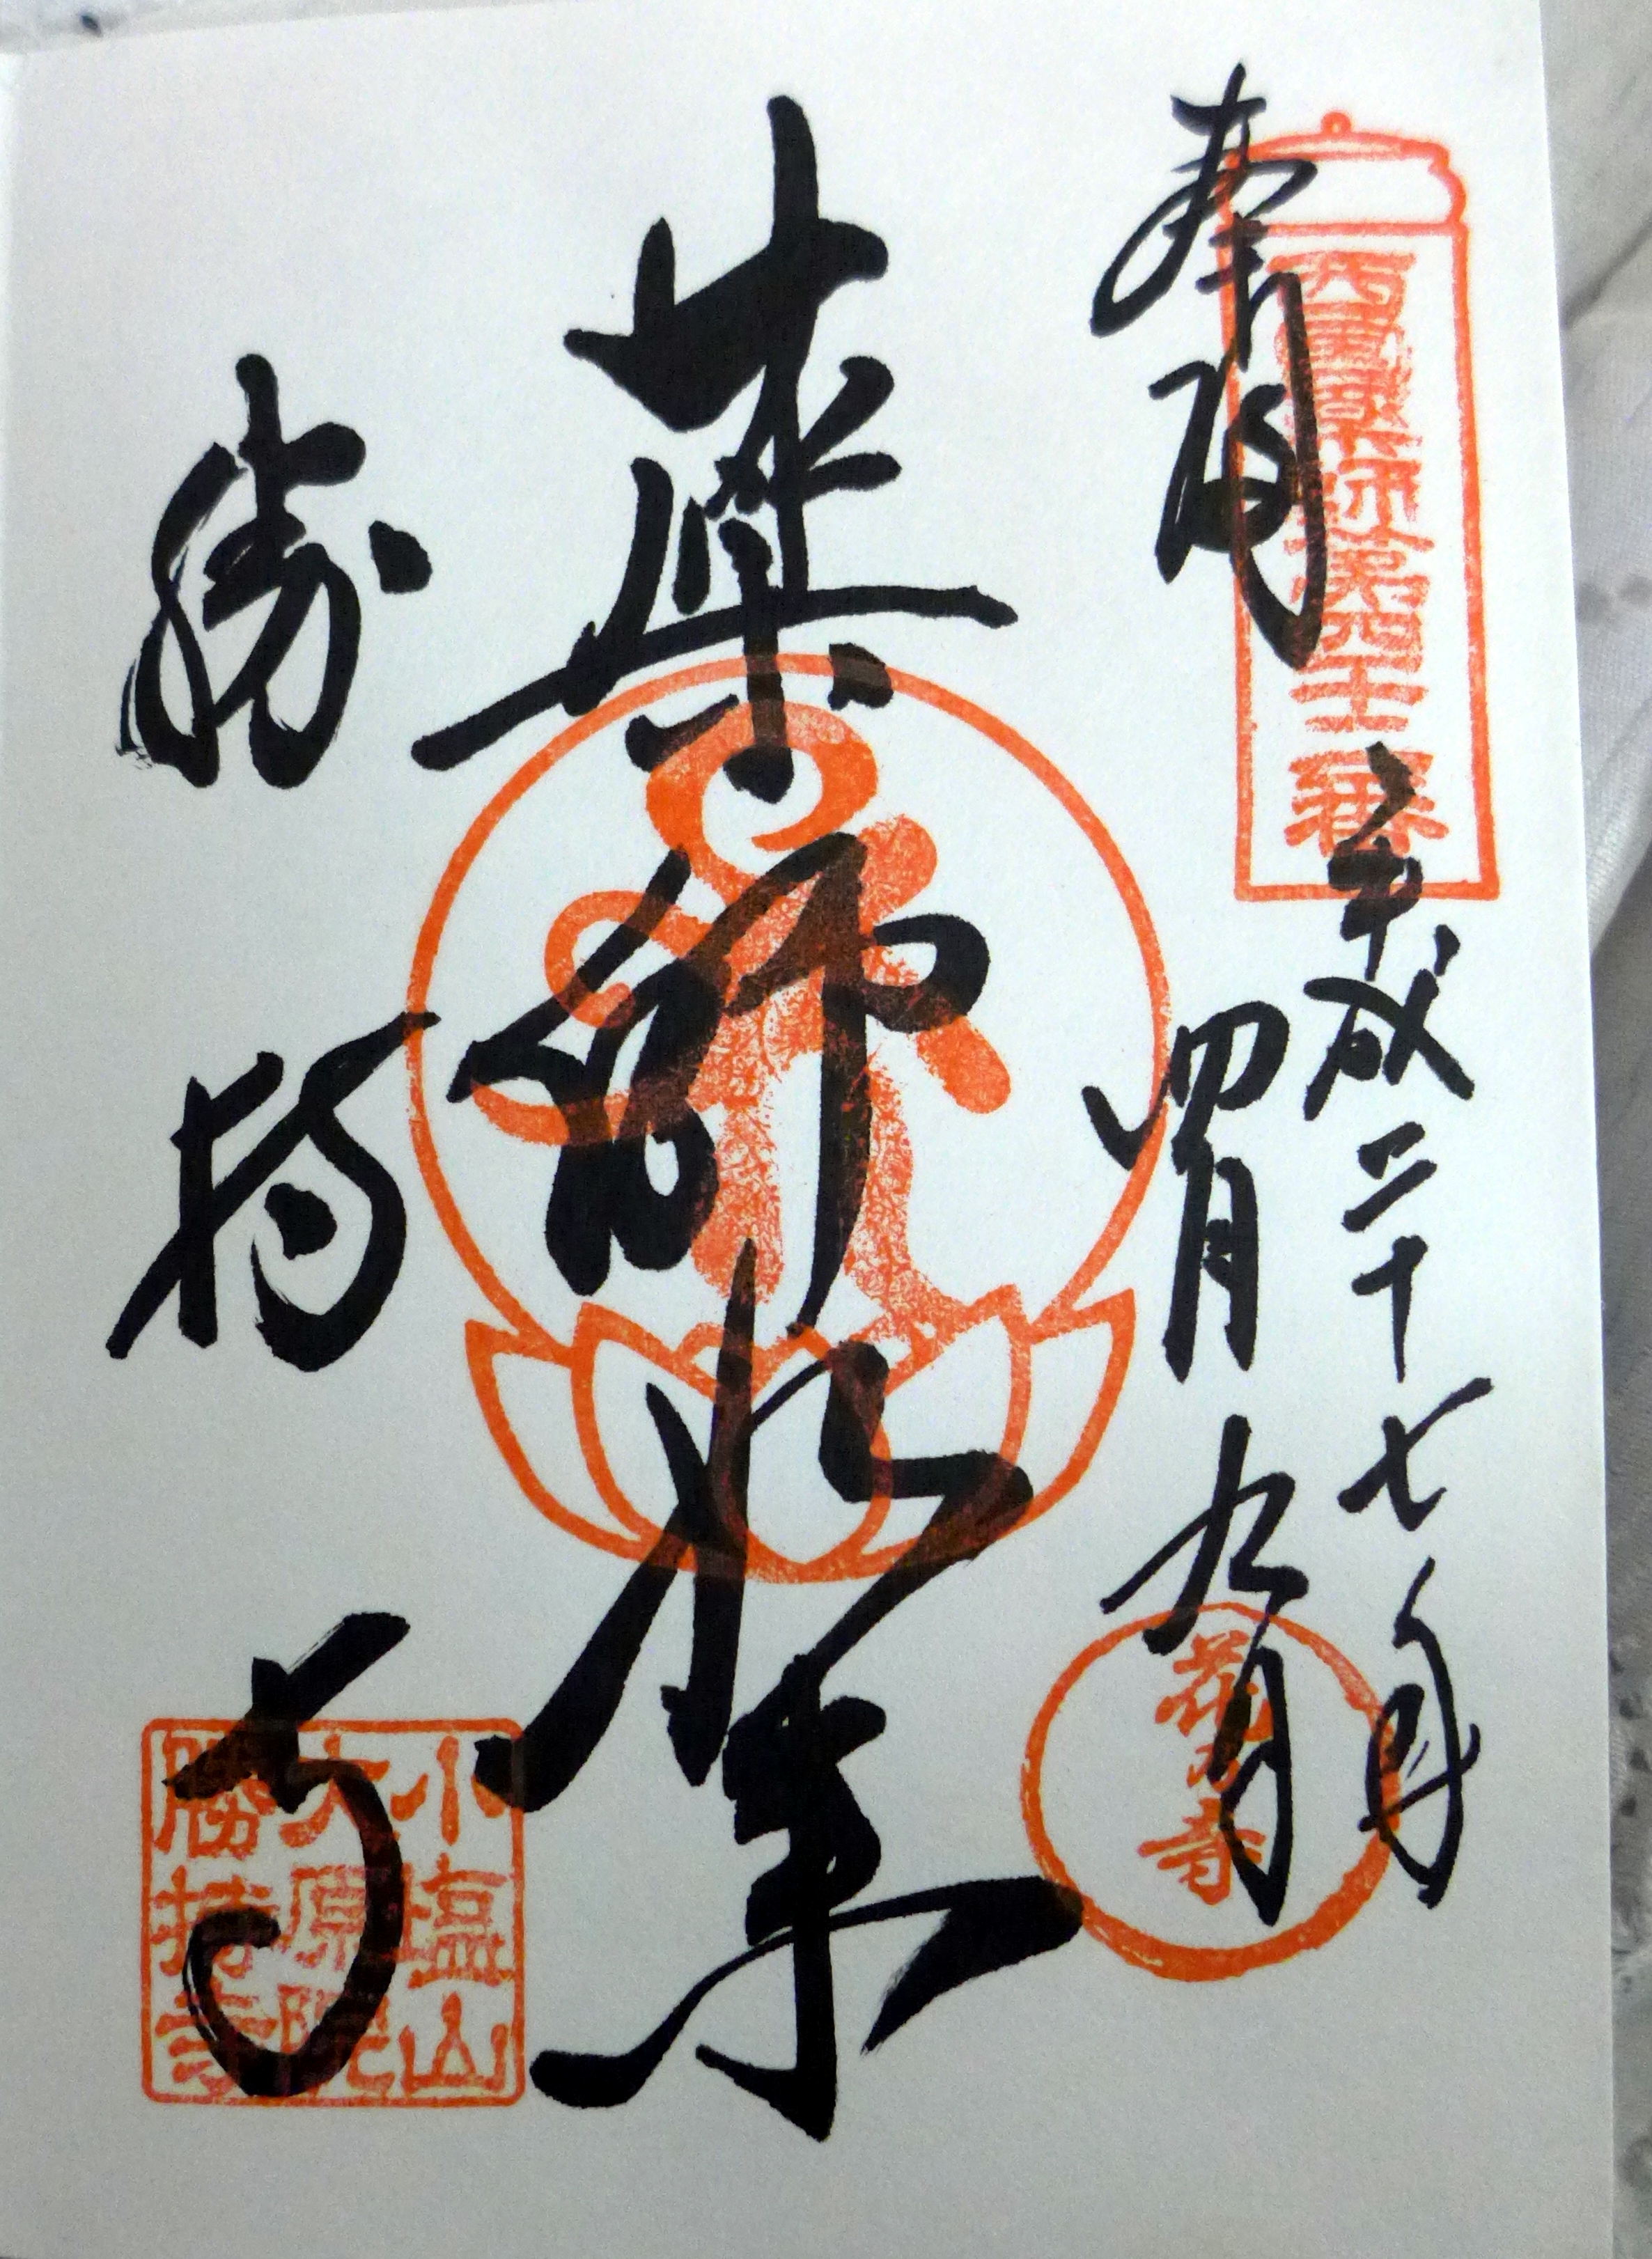 奉拝
西国薬師第四十二番
平成二十七年
四月九日
花の寺
薬師如来
勝持寺
小塩山
大原院
勝持寺